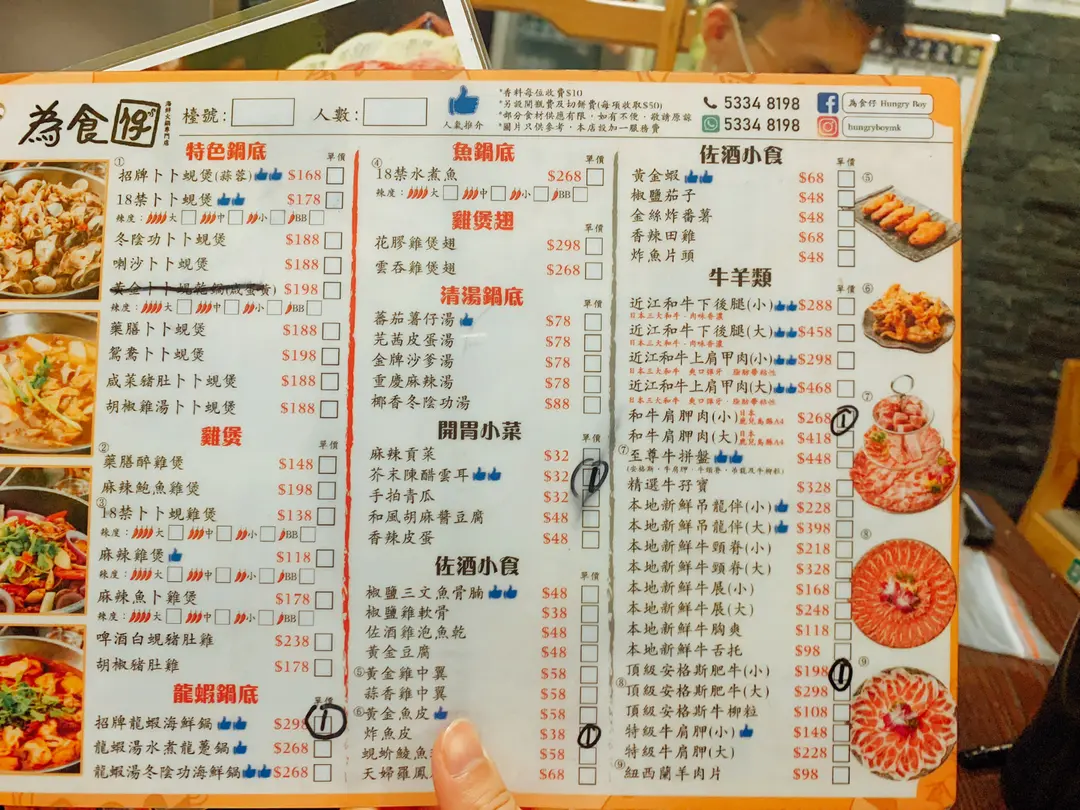 為食仔
檯號：
人數：
人氣推介
*香料每位收費$10
*另設開瓶費及切餅費(每項收取$50)
*部分食材供應有限，如有不便，敬請原諒
*圖片只供參考，本店設加一服務費
5334 8198
5334 8198
為食仔 Hungry Boy
hungryboymk
特色鍋底
單價
①
招牌卜卜蜆煲(蒜蓉) $168
18禁卜卜蜆煲 $178
辣度： 大 中 小 BB
冬陰功卜卜蜆煲 $188
喇沙卜卜蜆煲 $188
黃金卜卜蜆花鍋(咸蛋黃) $198
辣度： 大 中 小 BB
藥膳卜卜蜆煲 $188
鴛鴦卜卜蜆煲 $198
咸菜豬肚卜卜蜆煲 $188
胡椒雞湯卜卜蜆煲 $188
雞煲
單價
②
藥膳醉雞煲 $148
麻辣鮑魚雞煲 $198
③
18禁卜卜蜆雞煲 $138
辣度： 大 中 小 BB
麻辣雞煲 $118
辣度： 大 中 小 BB
麻辣魚卜雞煲 $178
辣度： 大 中 小 BB
啤酒白蜆豬肚雞 $238
胡椒豬肚雞 $178
龍蝦鍋底
單價
招牌龍蝦海鮮鍋 $298 1
龍蝦湯水煮龍躉鍋 $268
龍蝦湯冬陰功海鮮鍋 $268
魚鍋底
單價
④
18禁水煮魚 $268
辣度： 大 中 小 BB
雞煲翅
單價
花膠雞煲翅 $298
雲吞雞煲翅 $268
清湯鍋底
單價
蕃茄薯仔湯 $78
芫茜皮蛋湯 $78
金牌沙爹湯 $78
重慶麻辣湯 $78
椰香冬陰功湯 $88
開胃小菜
單價
麻辣貢菜 $32
芥末陳醋雲耳 $32 1
手拍青瓜 $32
和風胡麻醬豆腐 $48
香辣皮蛋 $48
佐酒小食
單價
椒鹽三文魚骨腩 $48
椒鹽雞軟骨 $38
佐酒雞泡魚乾 $48
黃金豆腐 $48
⑤黃金雞中翼 $58
蒜香雞中翼 $58
⑥黃金魚皮 $58
炸魚皮 $38 1
蜆蚧鯪魚 $58
天婦羅鳳 $68
佐酒小食
單價
黃金蝦 $68
椒鹽茄子 $48
金絲炸番薯 $48
香辣田雞 $68
炸魚片頭 $48
牛羊類
單價
近江和牛下後腿(小) $288
日本三大和牛，肉味香濃
近江和牛下後腿(大) $458
日本三大和牛，肉味香濃
近江和牛上肩甲肉(小) $298
日本三大和牛 爽口彈牙 脂肪帶粘性
近江和牛上肩甲肉(大) $468
日本三大和牛 爽口彈牙 脂肪帶粘性
和牛肩胛肉(小) 日本鹿兒島縣A4 $268 1
和牛肩胛肉(大) 日本鹿兒島縣A4 $418
⑦至尊牛拼盤 $448
精選牛孖寶 $328
本地新鮮吊龍伴(小) $228
本地新鮮吊龍伴(大) $398
本地新鮮牛頸脊(小) $218
本地新鮮牛頸脊(大) $328
本地新鮮牛展(小) $168
本地新鮮牛展(大) $248
本地新鮮牛胸爽 $118
本地新鮮牛舌托 $98
頂級安格斯肥牛(小) $198 1
⑧頂級安格斯肥牛(大) $298
頂級安格斯牛柳粒 $108
特級牛肩胛(小) $148
特級牛肩胛(大) $228
⑨紐西蘭羊肉片 $98
⑤
⑥
⑦
⑧
⑨